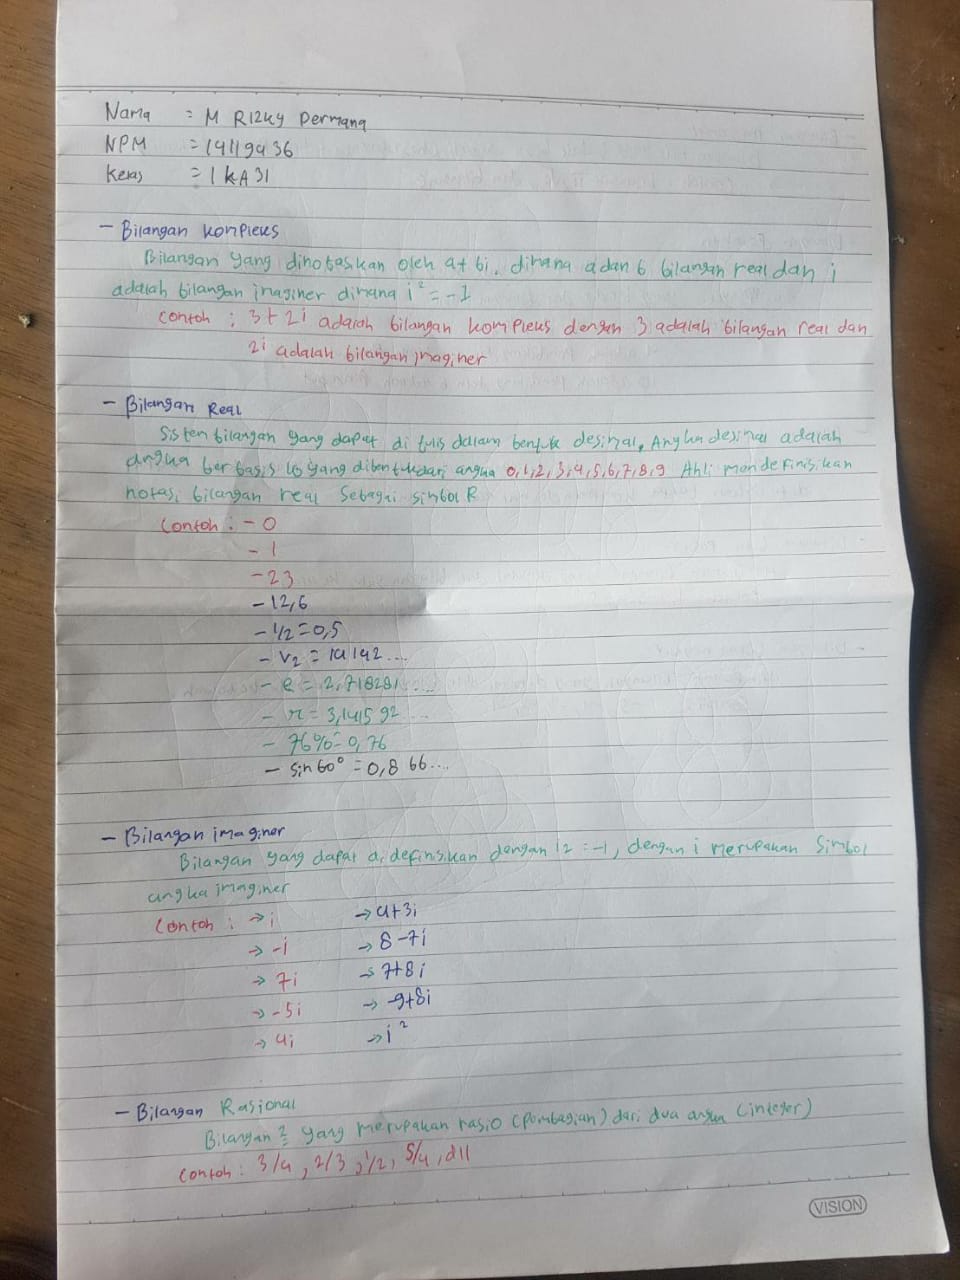 Nama = M Rizky Permana
NPM = 14119436
Kelas = 1KA31
- Bilangan Kompleks
Bilangan yang dinotasikan oleh a+bi, dimana a dan b bilangan real dan i
adalah bilangan imaginer dimana i² = -1
Contoh : 3+2i adalah bilangan kompleks dengan 3 adalah bilangan real dan
2i adalah bilangan imaginer
- Bilangan Real
Sistem bilangan yang dapat di tulis dalam bentuk desimal. Angka desimal adalah
angka berbasis 10 yang dibentuk dari angka 0,1,2,3,4,5,6,7,8,9 Ahli mendefinisikan
notasi bilangan real sebagai simbol R
Contoh : - 0
- 1
- 23
- 12,6
- 1/2 = 0,5
- √2 = 14142....
- e = 2,718281....
- π = 3,141592...
- 76% = 0,76
- sin 60° = 0,866....
- Bilangan imaginer
Bilangan yang dapat didefinsikan dengan i2 = -1, dengan i merupakan simbol
angka imaginer
Contoh : → i → 4+3i
→ -i → 8-7i
→ 7i → 7+8i
→ -5i → -9+8i
→ 4i → i²
- Bilangan Rasional
Bilangan2 yang merupakan rasio (pembagian) dari dua angka (integer)
Contoh : 3/4, 2/3, 1/2, 5/4, dll
VISION